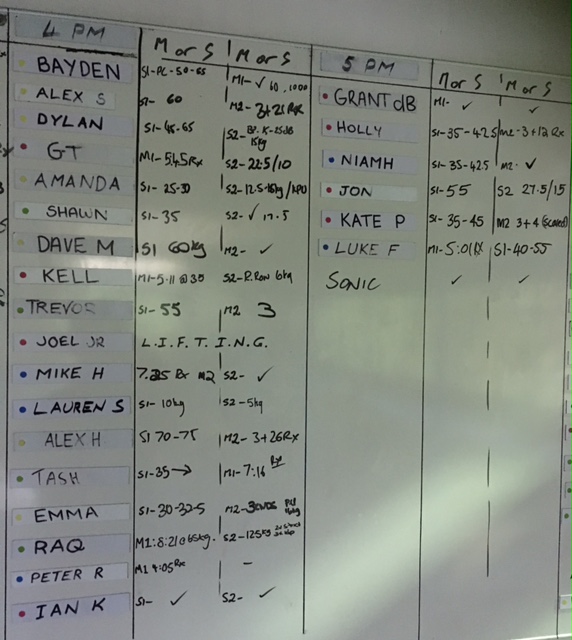 4 PM
M or S | M or S
BAYDEN S1-PC-50-55 M1-✓ 60.1000
ALEX S S1- 60 M2- 3+21 Rx
DYLAN S1-45-65 S2- K-25DB 15kg
GT M1-5.45 Rx S2-22.5/10
AMANDA S1-25-30 S2-12.5-15kg
SHAWN S1-35 S2-✓ 17.5
DAVE M S1 60kg M2- ✓
KELL M1-5.11 @ 35 S2-R.Row 6kg
TREVOR S1-55 M2 3
JOEL JR L.I.F.T.I.N.G.
MIKE H 7.25 Rx M2 S2- ✓
LAUREN S S1-10kg S2-5kg
ALEX H S1 70-75 M2-3+26Rx
TASH S1-35→ M1-7:16 Rx
EMMA S1-30-32.5 M2-3rnds
RAQ M1:8:21@65kg. S2-12.5kg
PETER R M1 4:05 Rx -
IAN K S1- ✓ S2- ✓
5 PM
M or S | M or S
GRANT dB M1- ✓ ✓
HOLLY S1-35-42.5 M2-3+12 Rx
NIAMH S1-35-42.5 M2- ✓
JON S1-55 S2 27.5/15
KATE P S1-35-45 M2 3+4 (scaled)
LUKE F M1-5:01 Rx S1-40-55
SONIC ✓ ✓